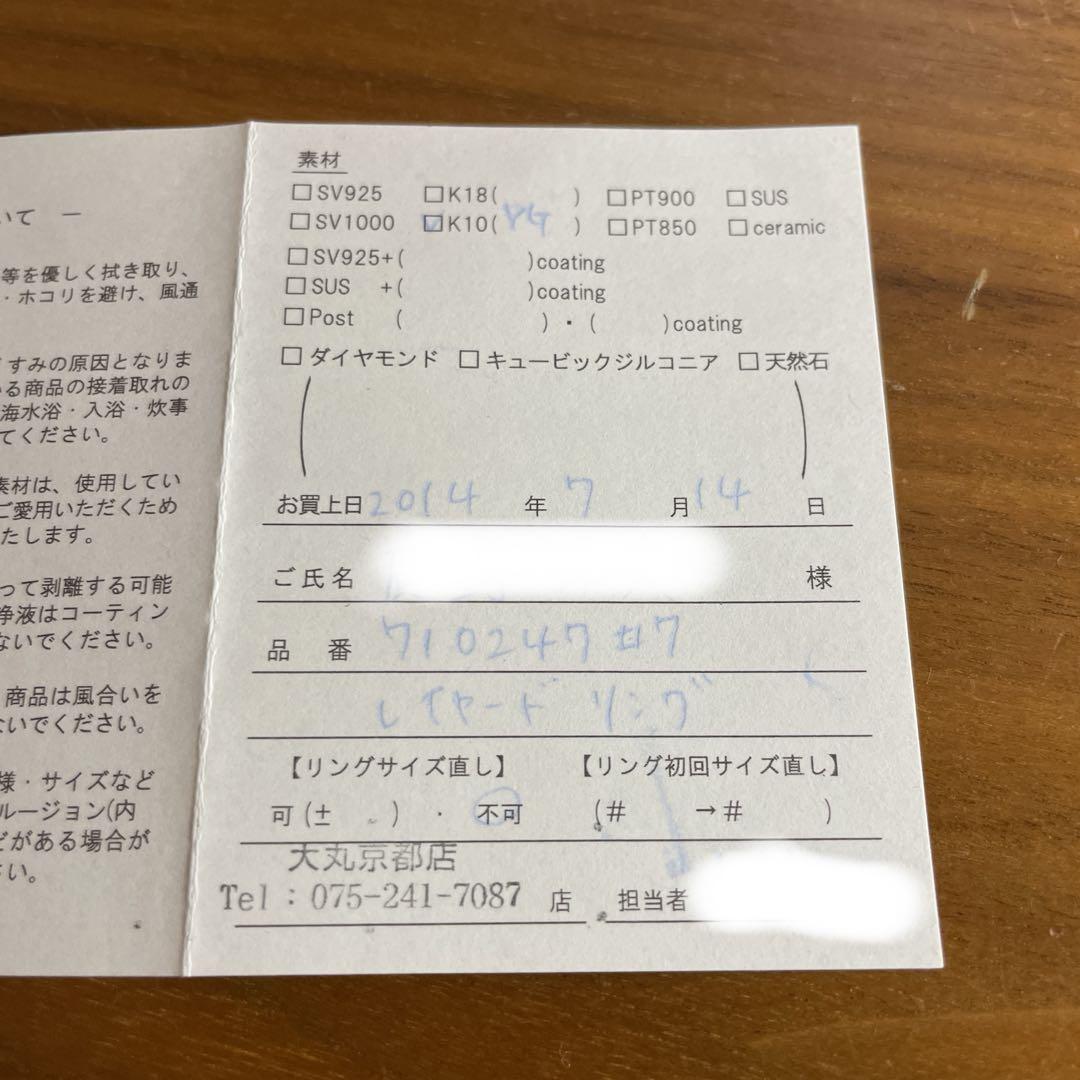 いて －
等を優しく拭き取り、
・ホコリを避け、風通
すみの原因となりま
る商品の接着取れの
海水浴・入浴・炊事
てください。
素材は、使用してい
ご愛用いただくため
たします。
って剥離する可能
浄液はコーティン
ないでください。
商品は風合いを
ないでください。
様・サイズなど
ルージョン(内
どがある場合が
さい。
素材
□SV925 □K18( ) □PT900 □SUS
□SV1000 ☑K10(PG ) □PT850 □ceramic
□SV925+( )coating
□SUS +( )coating
□Post ( )・( )coating
□ ダイヤモンド □ キュービックジルコニア □ 天然石
( )
お買上日 2014 年 7 月 14 日
ご氏名 様
品 番 710247 #7
レイヤード リング
【リングサイズ直し】 【リング初回サイズ直し】
可 (± ) ・ 不可 (# →# )
大丸京都店
Tel：075-241-7087 店 担当者